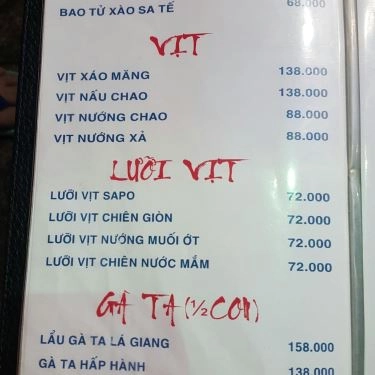 BAO TỬ XÀO SA TẾ 68.000
VỊT
VỊT XÁO MĂNG 138.000
VỊT NẤU CHAO 138.000
VỊT NƯỚNG CHAO 88.000
VỊT NƯỚNG XẢ 88.000
LƯỠI VỊT
LƯỠI VỊT SAPO 72.000
LƯỠI VỊT CHIÊN GIÒN 72.000
LƯỠI VỊT NƯỚNG MUỐI ỚT 72.000
LƯỠI VỊT CHIÊN NƯỚC MẮM 72.000
GÀ TA (½ CON)
LẨU GÀ TA LÁ GIANG 158.000
GÀ TA HẤP HÀNH 138.000